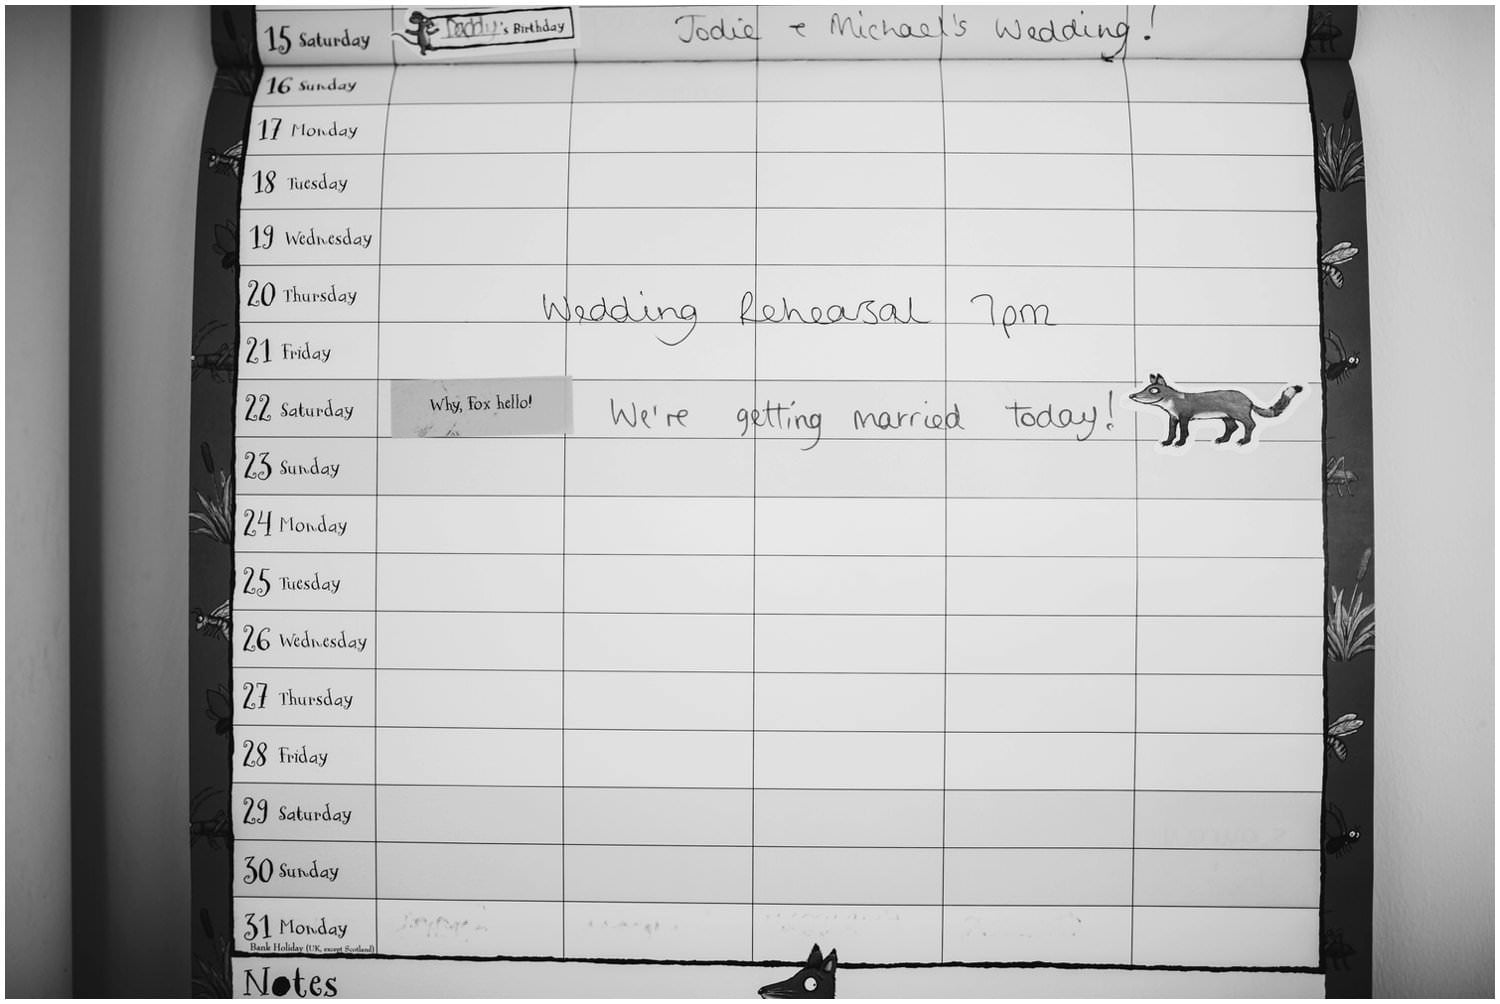 15 Saturday Daddy's Birthday Jodie + Michael's Wedding!
16 Sunday
17 Monday
18 Tuesday
19 Wednesday
20 Thursday Wedding Rehearsal 7pm
21 Friday
22 Saturday Why, Fox hello! We're getting married today!
23 Sunday
24 Monday
25 Tuesday
26 Wednesday
27 Thursday
28 Friday
29 Saturday
30 Sunday
31 Monday
Bank Holiday (UK, except Scotland)
Notes